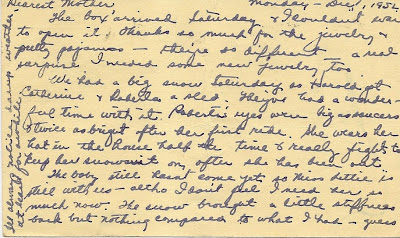 Dearest Mother, Monday - Dec 1, 1952
The box arrived Saturday & I couldn't wait
to open it. Thanks so much for the jewelry &
pretty pajamas - they're so different - a real
surprise. I needed some new jewelry too.
We had a big snow Saturday so Harold got
Catherine & Roberta a sled. They've had a wonder-
ful time with it. Roberta's eyes were big as saucers
& twice as bright after her first ride. She wears her
hat in the house half the time & really fights to
keep her snowsuit on after she has been out.
The baby still hasn't come yet, so Miss Lettie is
still with us - altho I don't feel I need her so
much now. The snow brought a little stiffness
back but nothing compared to what I had - guess
I'll always notice having weather
at least for awhile